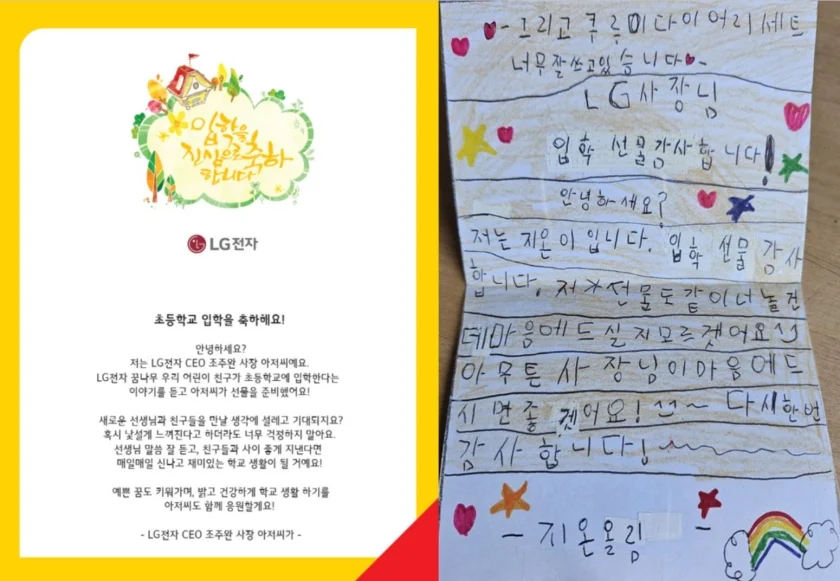 입학을
진심으로 축하
합니다
LG전자
초등학교 입학을 축하해요!
안녕하세요?
저는 LG전자 CEO 조주완 사장 아저씨예요.
LG전자 꿈나무 우리 어린이 친구가 초등학교에 입학한다는
이야기를 듣고 아저씨가 선물을 준비했어요!
새로운 선생님과 친구들을 만날 생각에 설레고 기대되지요?
혹시 낯설게 느껴진다고 하더라도 너무 걱정하지 말아요.
선생님 말씀 잘 듣고, 친구들과 사이 좋게 지낸다면
매일매일 신나고 재미있는 학교 생활이 될 거예요!
예쁜 꿈도 키워가며, 밝고 건강하게 학교 생활 하기를
아저씨도 함께 응원할게요!
- LG전자 CEO 조주완 사장 아저씨가 -
- 그리고 쿠루미다이어리세트
너무잘쓰고있습니다 -
LG사장님
입학 선물감사합니다!
안녕하세요?
저는 지온이입니다. 입학 선물 감사
합니다. 저 선물도같이너놀건
데마음에드실지모르겟어요
아무튼사장님이마음에드
시면좋겟어요! ~ 다시한번
감사합니다!
- 지온올림 -